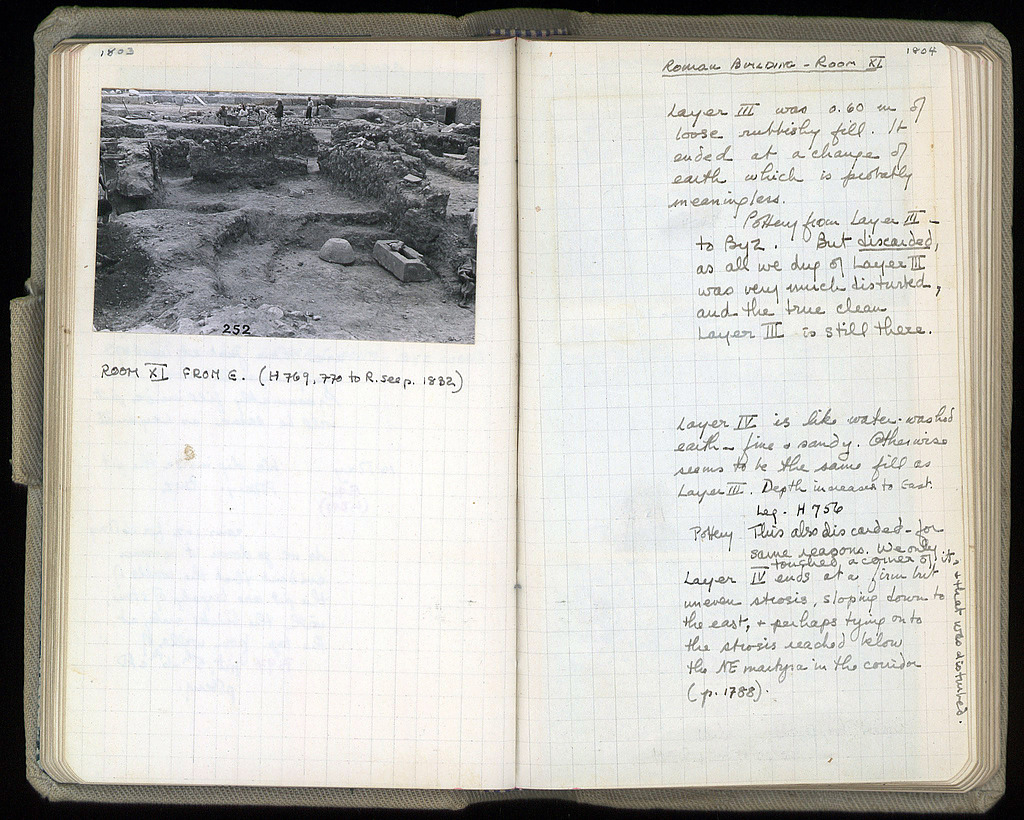 1803
252
ROOM XI FROM E. (H 769, 770 to R. see p. 1832)
1804
Roman Building - Room XI
Layer III was 0.60 m of
loose rubbishy fill. It
ended at a change of
earth which is probably
meaningless.
Pottery from Layer III -
to Byz. But discarded,
as all we dug of Layer III
was very much disturbed,
and the true clean
Layer III is still there.
Layer IV is like water-washed
earth - fine & sandy. Otherwise
seems to be the same fill as
Layer III. Depth increases to East.
Leg. H 756
Pottery This also discarded - for
same reasons. We only
touched a corner of it,
& that was disturbed.
Layer IV ends at a firm but
uneven strosis, sloping down to
the east, & perhaps tying on to
the strosis reached below
the NE martyra in the corridor
(p. 1788).